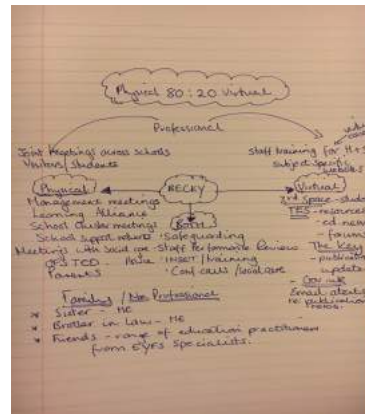 Physical 80:20 Virtual
Professional
Joint Meetings across schools
Visitors/students
staff training for H+S
subject specific
websites
Physical
BECKY
Virtual
Management meetings
Learning Alliance
School cluster meetings
School support network
Meetings with Social care
OFSTED
Parents
Both
Safeguarding
Staff Performance Reviews
INSET/training
Conf calls/social care
3rd space - stude
TES - resources
- ed. new
- forum
The Key
- publication
update
- Gov.uk
Email alerts
re publication
Families/Non Professional
* Sister - ME
* Brother in Law - ME
* Friends - range of education practitioners
from EYFS specialists.